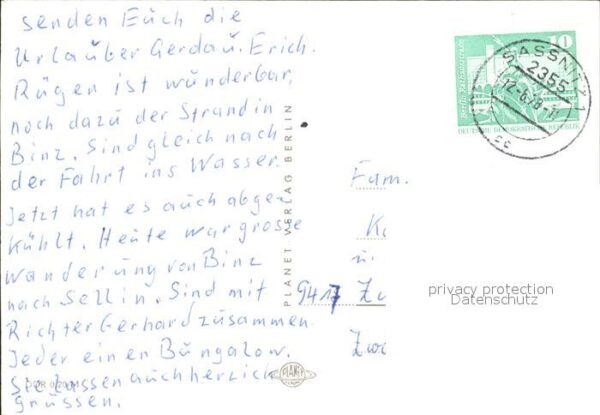 senden Euch die
Urlauber Gerda u. Erich.
Rügen ist wunderbar,
noch dazu der Strand in
Binz. Sind gleich nach
der Fahrt ins Wasser.
Jetzt hat es auch abge-
kühlt. Heute war grosse
Wanderung von Binz
nach Sellin. Sind mit
Richter Gerhard zusammen
Jeder einen Bungalow.
Sie lassen auch herzlich
grüssen.
PLANET VERLAG BERLIN
PLANET
10
DEUTSCHE DEMOKRATISCHE REPUBLIK
SASSNITZ 1
2355
Fam.
K
u.
9417 Zw
Zwö
privacy protection
Datenschutz